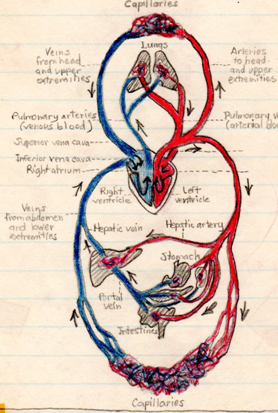 Capillaries
Lungs
Veins
from head
and upper
extremities
Arteries
to head
and upper
extremities
Pulmonary arteries
(venous blood)
Pulmonary
Superior vena cava
Inferior vena cava
Right atrium
Right
ventricle
Left
ventricle
Veins
from abdomen
and lower
extremities
Hepatic vein
Hepatic artery
Stomach
Portal
vein
Intestines
Capillaries